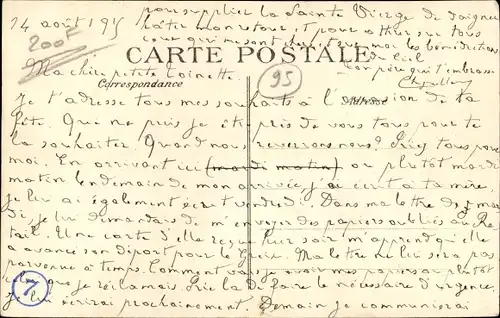 14 août 1915
pour supplier la Sainte Vierge de daigner
hâter mon retour, et pour attirer sur tous
ceux qui me sont chers tous les bénédictions
du Ciel
200F
CARTE POSTALE
Ton père qui t'embrasse
Ma chère petite Toinette.
95
Correspondance
Adresse
Je t'adresse tous mes souhaits à l'occasion de ta
fête. Que ne puis je être près de vous tous pour te
la souhaiter. Quand nous reverrons nous? Priez tous pour
moi. En arrivant ici (mardi matin) ou plutôt mardi
matin lendemain de mon arrivée, j'ai écrit à ta mère.
Je lui ai également écrit vendredi. Dans ma lettre de mar
di, je lui demandais de m'envoyer des papiers oubliés au
. Une carte d'elle reçue hier soir m'apprend qu'elle
a avancé son départ pour le . Ma lettre ne lui sera pas
parvenue à temps. Comment vais je avoir mes papiers ou plutôt
ceux que je réclamais. Prie la de faire le nécessaire d'urgence,
7
je lui écrirai prochainement. Demain je communierai